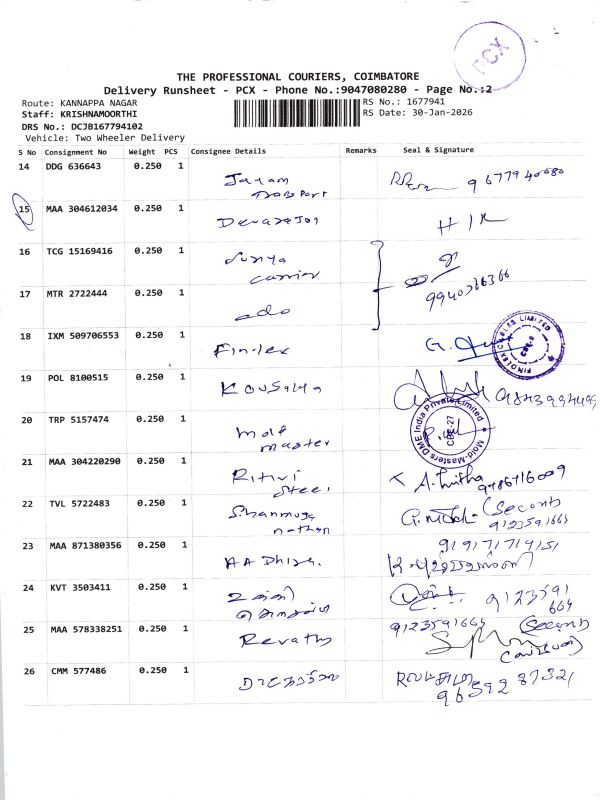 PCX
THE PROFESSIONAL COURIERS, COIMBATORE
Delivery Runsheet - PCX - Phone No.:9047080280 - Page No.:2
Route: KANNAPPA NAGAR
Staff: KRISHNAMOORTHI
DRS No.: DCJB167794102
Vehicle: Two Wheeler Delivery
RS No.: 1677941
RS Date: 30-Jan-2026
S No Consignment No Weight PCS Consignee Details Remarks Seal & Signature
14 DDG 636643 0.250 1 Jayam
Transport
15 MAA 304612034 0.250 1 Devarajan
16 TCG 15169416 0.250 1 Surya
carrier
9940316366
17 MTR 2722444 0.250 1 ado
18 IXM 509706553 0.250 1 Finolex
FINOLEX CABLES LIMITED
19 POL 8100515 0.250 1 Kousalya
20 TRP 5157474 0.250 1 Mold
master
Mold-Masters DME India Private Limited
CBE-27
21 MAA 304220290 0.250 1 Ritivi
Steel
A. Anitha 9786716009
22 TVL 5722483 0.250 1 Shanmuga
nathan
Second
9123591664
23 MAA 871380356 0.250 1 AA Dhiya.
919171719151
24 KVT 3503411 0.250 1
9123591
664
25 MAA 578338251 0.250 1 Revathy
9123591664 Second
26 CMM 577486 0.250 1
9659287321